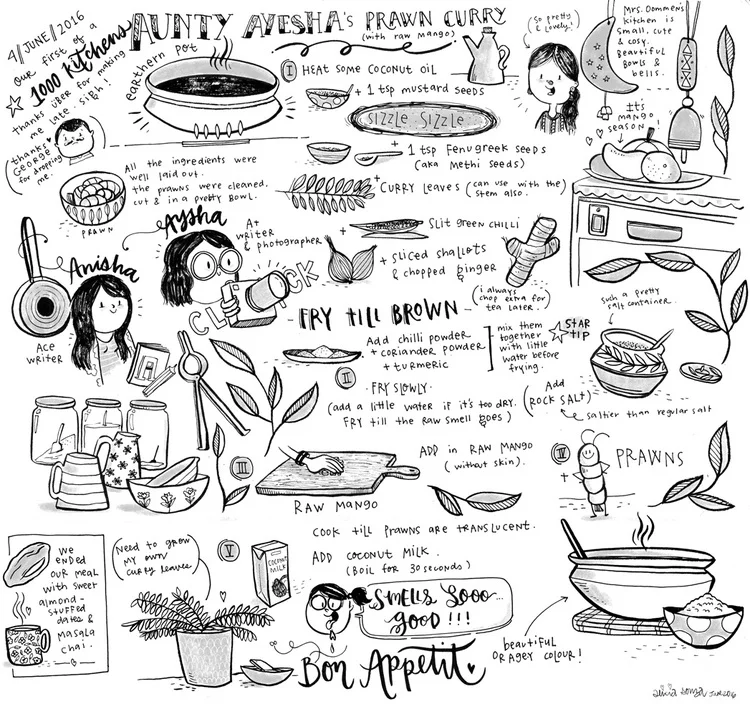 4/JUNE/2016
our first of a
1000 KitchenS
thanks Uber for making
me late. Sigh!
thanks
GEORGE
for dropping
me.
AUNTY AYESHA's PRAWN CURRY
(with raw mango)
earthern pot
I HEAT SOME COCONUT OIL
+ 1 tsp mustard seeds
SIZZLE SIZZLE
+ 1 tsp Fenugreek seeds
(aka Methi seeds)
+ CURRY LEAVES (can use with the)
stem also.
+ SLIT green CHILLI
+ sliced shallots
& chopped ginger
(i always
chop extra for
tea later.
(So pretty
& lovely!)
Mrs. Oommen's
kitchen is
small, cute
& cosy.
Beautiful
Bowls &
bells.
It's
MANGO
SEASON!
All the ingredients were
well laid out.
The prawns were cleaned,
cut & in a pretty bowl.
PRAWN
Aysha
A+
writer
& photographer
CLICK
Anisha
Ace
writer
FRY till BROWN
Add chilli powder
+ coriander powder
+ turmeric
mix them
together
with little
water before
frying.
STAR
TIP
such a pretty
salt container.
II
FRY SLOWLY.
(add a little water if it's too dry.
FRY till the raw smell goes)
Add
(ROCK SALT)
saltier than regular salt
III
ADD in RAW MANGO
(without skin).
RAW MANGO
IV
+ PRAWNS
COOK till Prawns are TRANSLUCENT.
V
ADD COCONUT MILK.
(BOIL for 30 seconds)
COCONUT
MILK
Need to grow
my own
curry leaves
We
ENDED
OUR MEAL
with sweet
almond-
stuffed
dates &
MASALA
chai.
SMELLS SOOO
GOOD!!!
beautiful
ORANGEY COLOUR!
Bon Appetit